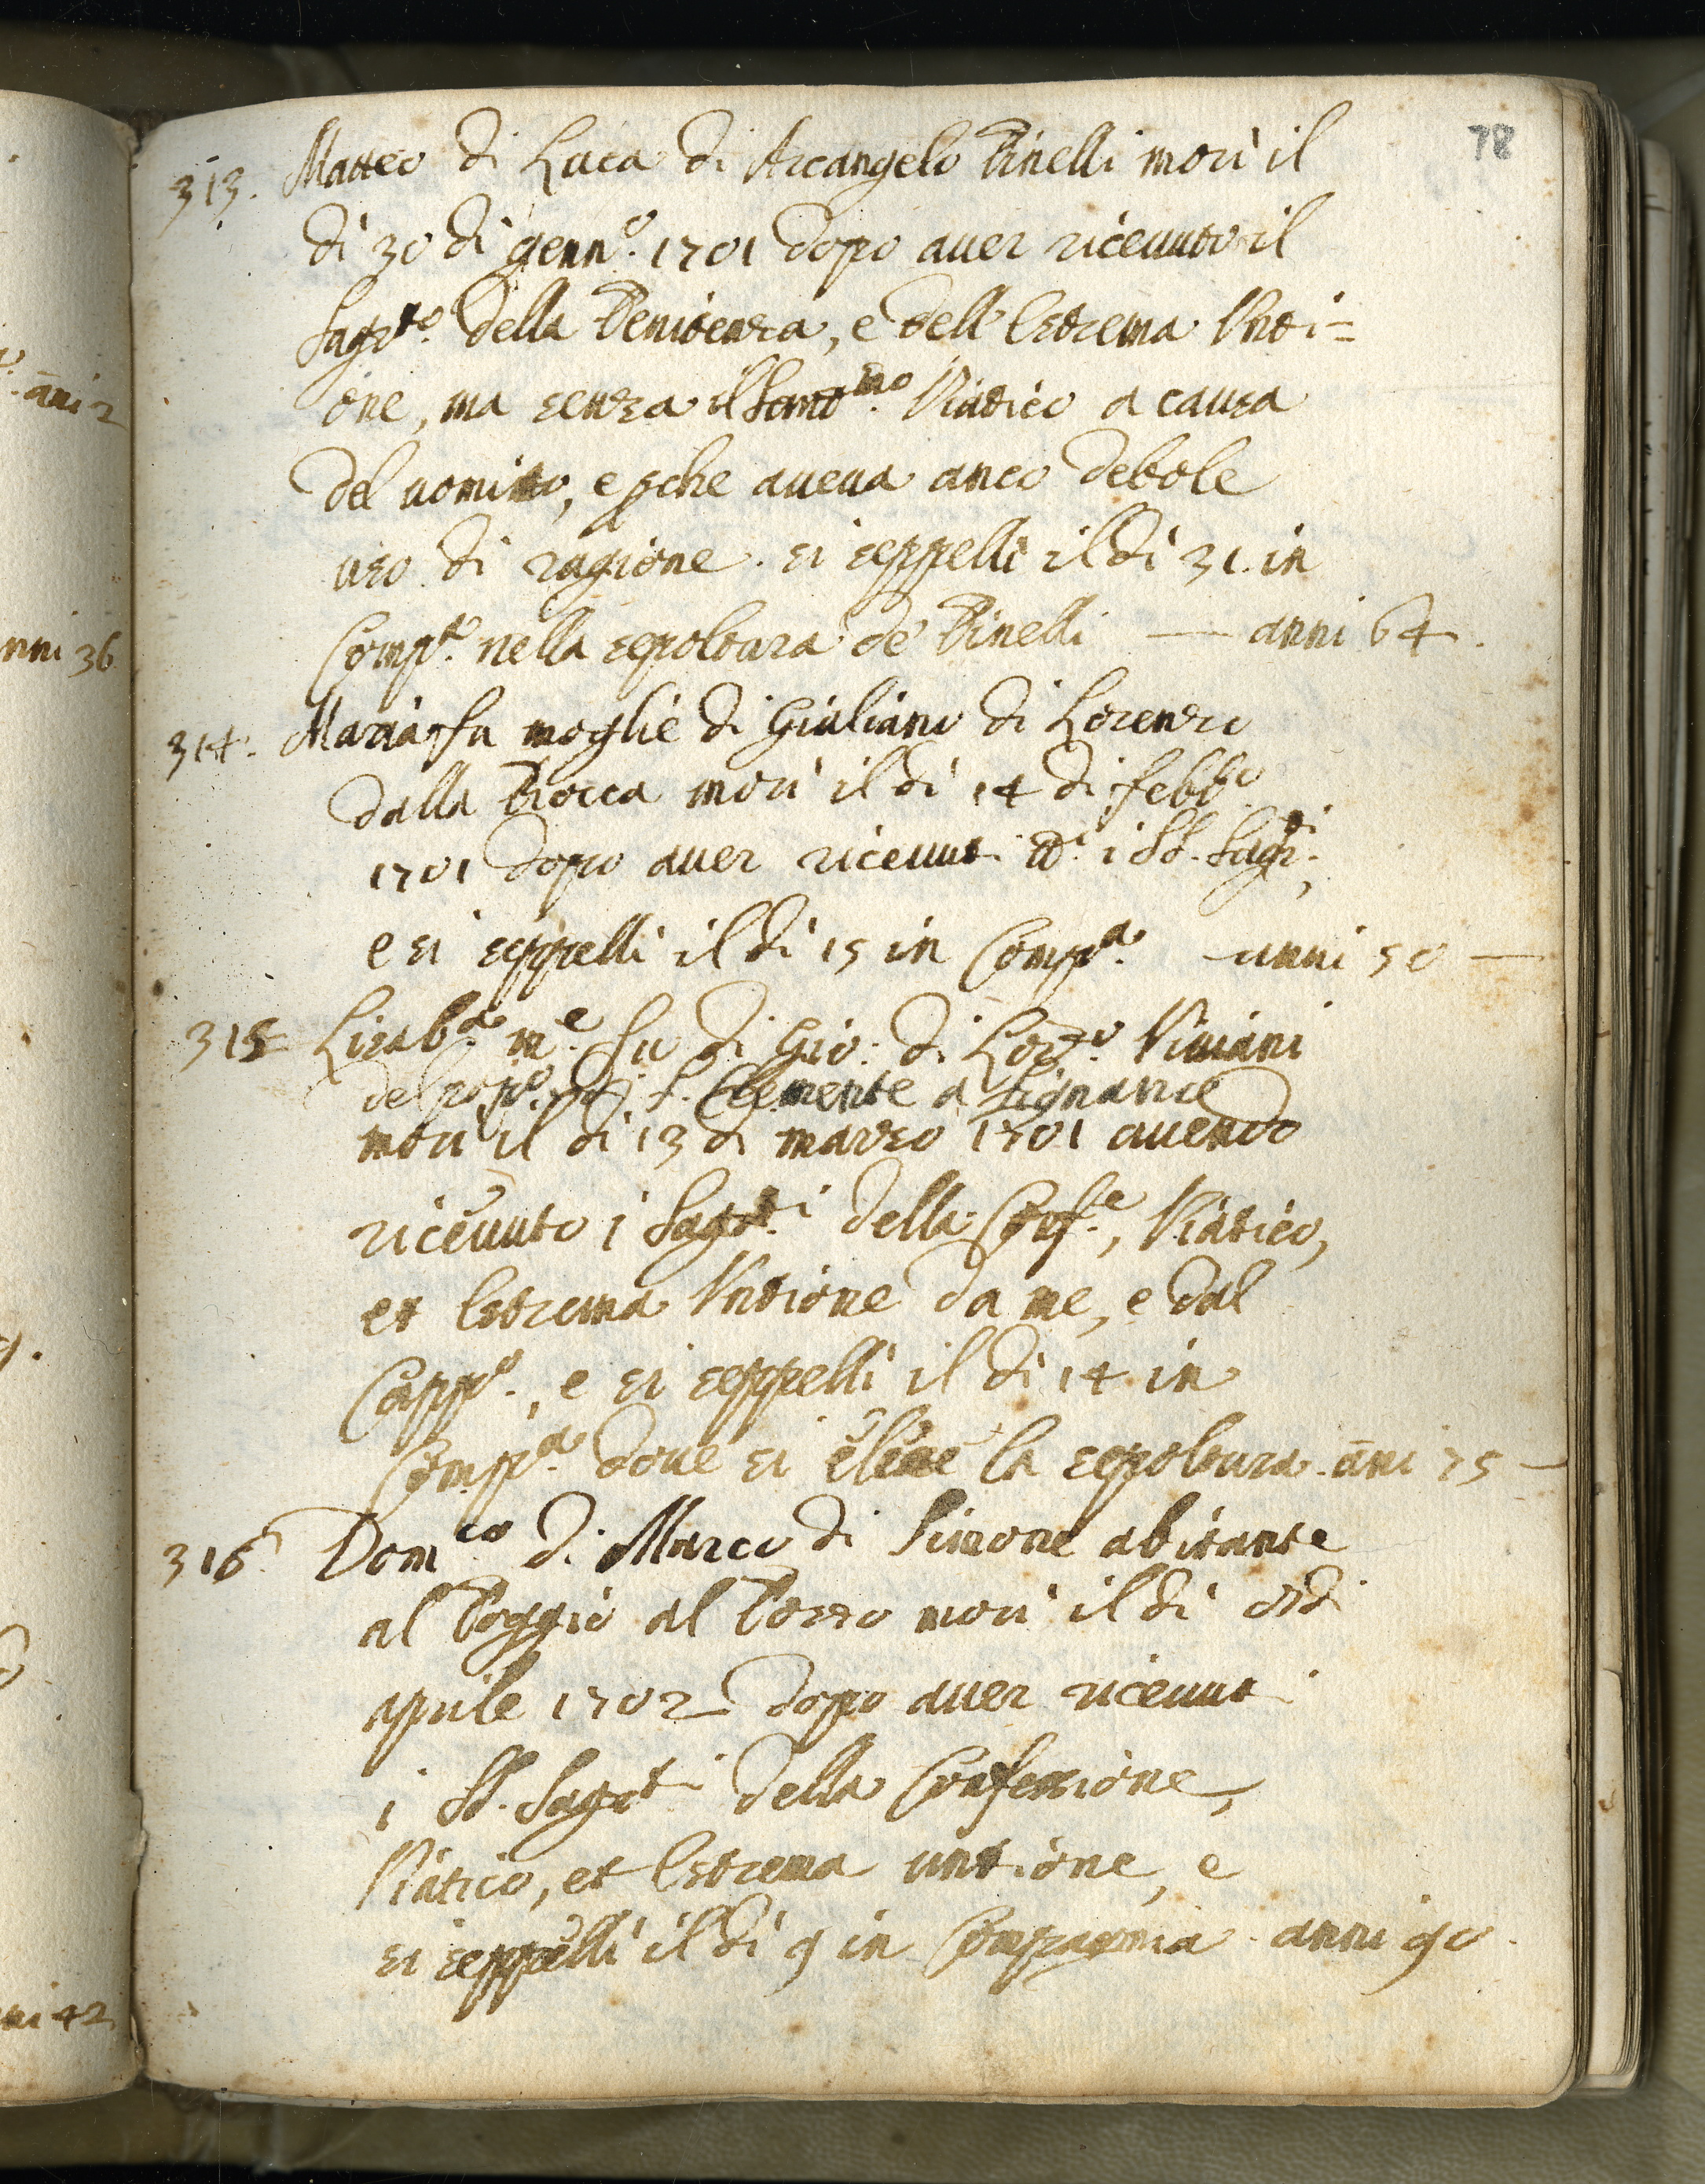 78
313. Matteo di Luca di Arcangelo Pinelli morì il
dì 30 di genn.o 1701 dopo auer riceuuto il
Sagr.to della Penitenza, e dell'Estrema Vnti=
one, ma senza il Sant.mo Viatico a causa
del uomito, e pche aueua anco debole
uso di ragione. si seppellì il dì 31. in
Comp.a nella sepoltura de Pinelli — anni 64.
314. Maria fu moglie di Giuliano di Lorenzo
dalla Rocca morì il dì 14 di febb.o
1701 dopo auer riceuuti tt.i i SS. Sagr.ti,
e si seppellì il dì 15 in Comp.a anni 50 —
315 Lisab.a m.e fu di Gio: di Lor.zo Viuiani
del pop.o di S. Clemente a Signano
morì il dì 13 di marzo 1701 auendo
riceuuto i Sagr.ti della Conf.e, Viatico,
et Estrema Vntione da me, e dal
Capp.o, e si seppellì il dì 14 in
Comp.a doue si elesse la sepoltura. ani 75 —
316. Dom.co di Marco di Simone abitante
al Poggio al Pozzo morì il dì 8 di
aprile 1702 dopo auer riceuuti
i SS. Sagr.ti della Confessione,
Viatico, et Estrema untione, e
si seppellì il dì 9 in Compagnia anni 90.
ani 2
nni 36
ni 42